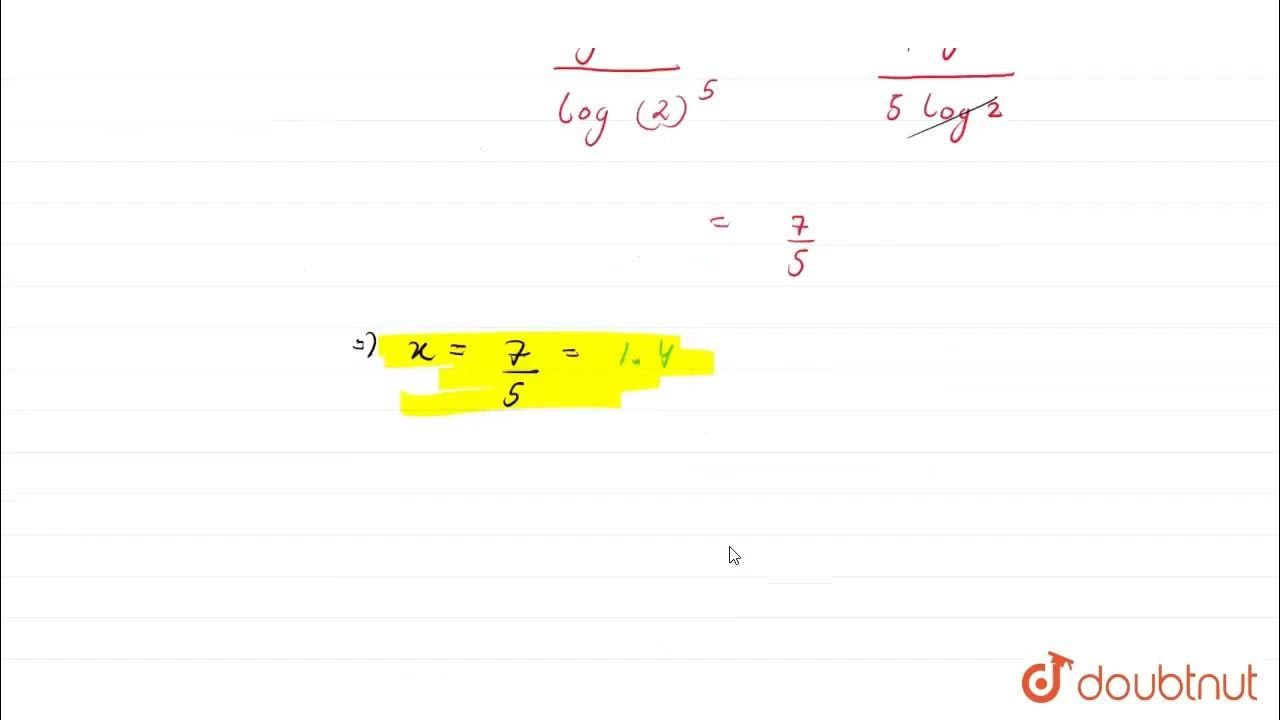 log (2)^5 5 log 2
= 7/5
=) x = 7/5 = 1.4
doubtnut